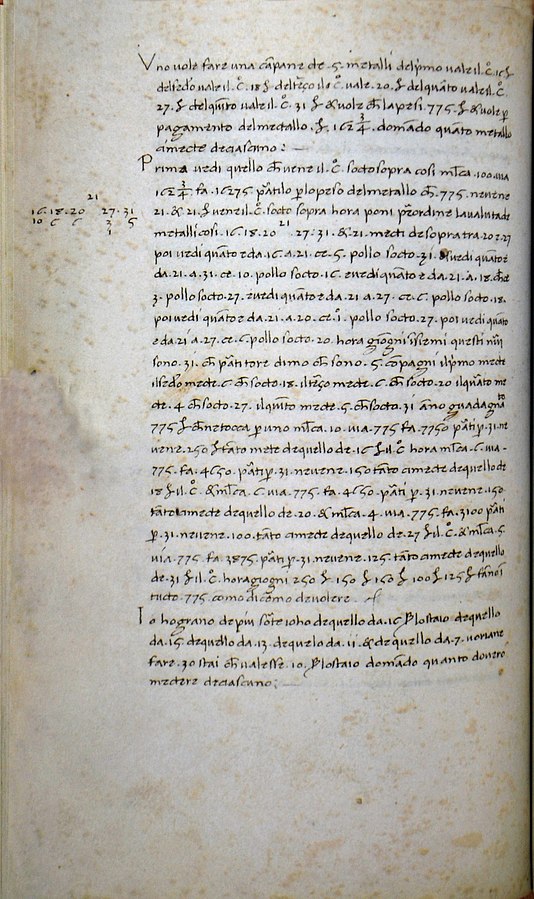 Uno vole fare una canpane de .5. metalli del pmo vale il .c°. 16 £
del sedo vale il .c°. 18 £ del terço il c° vale .20. £ del quarto vale il .c°.
27. £ del quito vale il .c°. 31 £ & vole che la pesi .775 £ & vole p
pagamento del metallo .£. 162 3/4 . domando quanto metallo
ci mecte de ciascuno :—
Prima vedi quello che vene il .c°. socto sopra cosi mlca .100. via
162 3/4 . fa . 16275 partilo p lo peso del metallo che .775. ne vene
21
16. 18. 20 27. 31
10 6 6 3 5
1
.21. & .21. £ vene il .c°. socto sopra hora poni p ordine la valuta de
metalli cosi .16. 18. 20 21 . 27. 31. & .21. mecti de sopra tra .20 e .27
poi vedi quanto è da .16. a .21. ce .5. pollo socto .31. & vedi quanto è
da .21. a .31. ce .10. pollo socto .16. e vedi quanto è da .21. a .18. che è
3. pollo socto .27. e vedi quanto è da .21. a .27. ce .6. pollo socto .18.
poi vedi quanto è da .21. a .20. ce .1. pollo socto .27. poi vedi quanto
è da 21 a .27. ce .6. pollo socto .20. hora giogni insiemi questi nuri
sono .31. che partitore dimo che sono .5. conpagni il pmo mecte
il sedo mecte .6. che socto .18. il terço mecte .6. che socto .20 il quarto me
cte .4 che socto .27. il quinto mecte .5. che socto .31 ano guadagnato
775 £ che ne tocca p uno mlca .10. via .775 fa .7750 parti p .31. ne
vene .250 £ tanto mete de quello de .16 £ il .c° hora mlca .6. via .
775. fa .4650. parti p .31. ne vene .150 tanto ci mecte de quello de
18 £ il .c°. & mlca .6. via .775. fa .4650. parti p .31. ne vene .150
tanto ci mecte de quello de .20. & mlca .4. via .775. fa .3100 parti
p .31. ne vene .100. tanto ci mecte de quello de .27 £ il .c°. & mlca .5
via .775. fa 3875. parti p .31. ne vene .125. tanto ci mecte de quello
de .31 £ il .c°. hora giogni 250 £ 150 £ 150 £ 100 £ 125 £ fano i
tucto .775. como dicemo de volere .
Io ho grano de piu sorte io ho de quello da .16 lo staio de quello
da .15. de quello da .13. de quelo da .11. & de quello da .7. voriane
fare .30 stai che valesse .10. lo staio domando quanto dovero
mectere de ciascuno :—